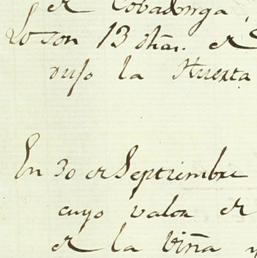 de Cobadonga,
Lo son 13 dhas. de
dujo la Huerta
En 30 de Septiembre
cuyo valor de
de la Viña y